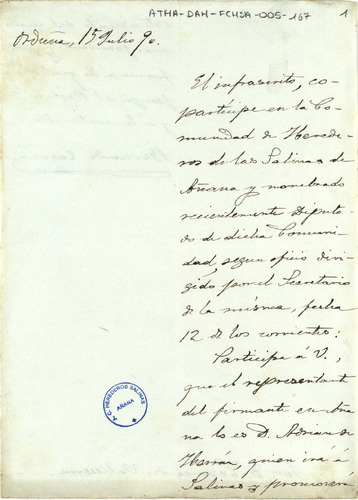 ATHA-DAH-FCHSA-005-167
1
Orduña, 15 Julio 90.
El infrascrito, co-
partícipe en la Co-
munidad de Herede-
ros de las Salinas de
Añana y nombrado
recientemente Diputa-
do de dicha Comuni-
dad, segun oficio diri-
gido por el Secretario
de la misma, fecha
12 de los corrientes:
Participa á V.,
que el representante
del firmante en
na lo es D. Adrian de
Herrán, quien irá á
Salinas y promoverá
A.C. HEREDEROS SALINAS
AÑANA